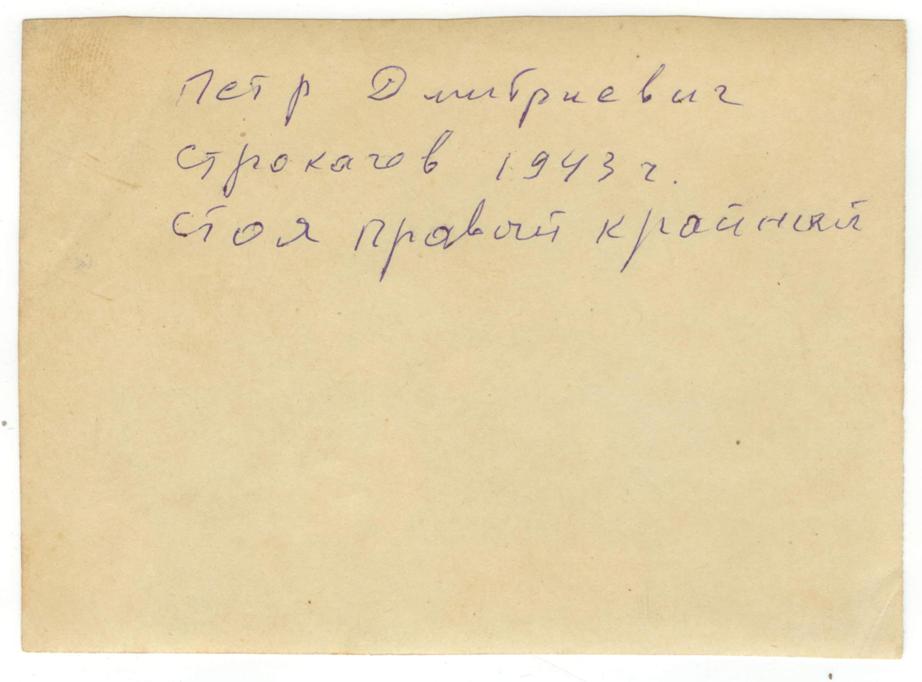 Петр Дмитриевич
Строкачов 1943 г.
Стоя правый крайний